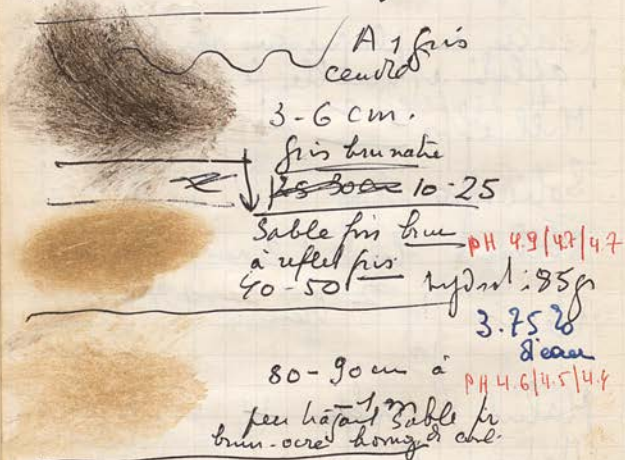 A 1 gris
cendré
3-6 cm.
gris brunatre
10-25
Sable gris brun
à reflet gris
pH 4.9/4.7/4.7
40-50
hydrol: 85gr
3.75 %
d'eau
80-90 cm à
pH 4.6/4.5/4.4
peu
Sable
brun-ocre homog.